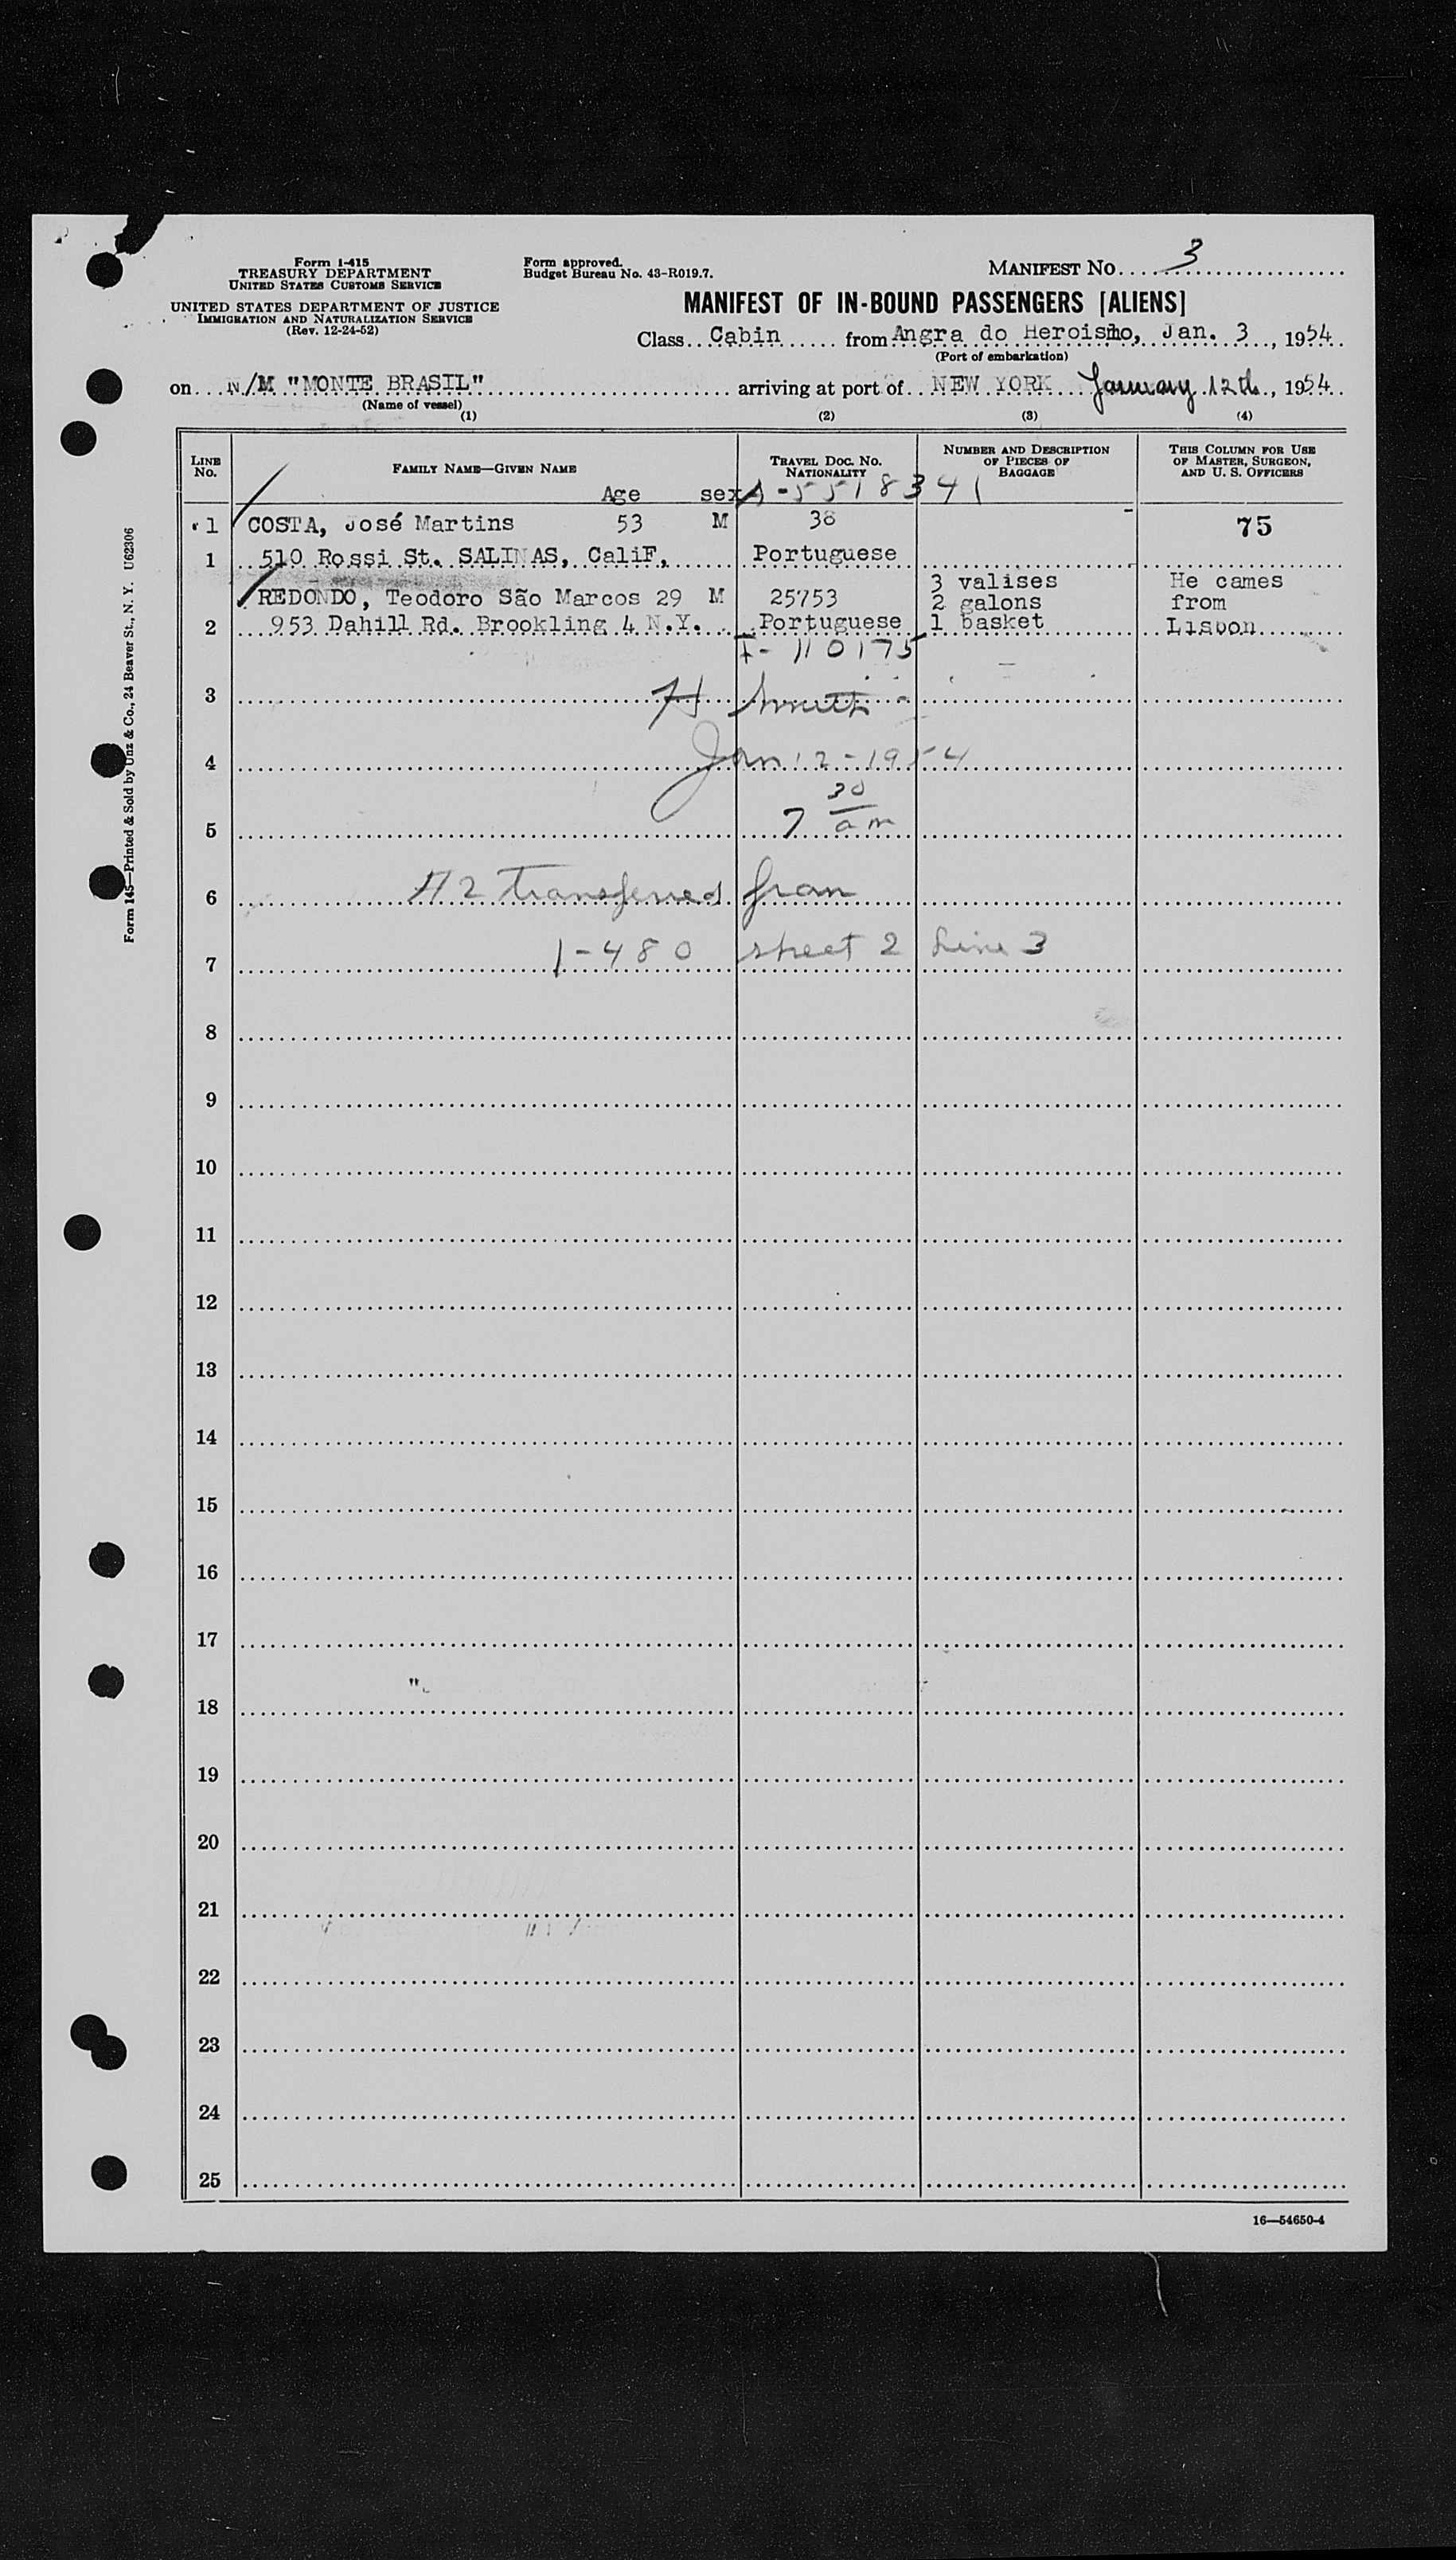 Form I-415
TREASURY DEPARTMENT
UNITED STATES CUSTOMS SERVICE
UNITED STATES DEPARTMENT OF JUSTICE
IMMIGRATION AND NATURALIZATION SERVICE
(Rev. 12-24-52)
Form approved.
Budget Bureau No. 43-R019.7.
MANIFEST No. 3
MANIFEST OF IN-BOUND PASSENGERS [ALIENS]
Class Cabin from Angra do Heroismo, Jan. 3, 1954
(Port of embarkation)
on N/M "MONTE BRASIL" arriving at port of NEW YORK January 12th, 1954
(Name of vessel)
(1) (2) (3) (4)
LINE No. FAMILY NAME—GIVEN NAME TRAVEL DOC. No. NATIONALITY NUMBER AND DESCRIPTION OF PIECES OF BAGGAGE THIS COLUMN FOR USE OF MASTER, SURGEON, AND U. S. OFFICERS
Age sex A-5518341
1 COSTA, José Martins 53 M 38 75
1 510 Rossi St. SALINAS, CaliF, Portuguese
3 valises He cames
REDONDO, Teodoro São Marcos 29 M 25753 2 galons from
2 953 Dahill Rd. Brookling 4 N.Y. Portuguese 1 basket Lisbon
I-110175
3 H Smith
4 Jan 12-1954
5 7 30 am
6 #2 Transferred from
7 I-480 sheet 2 Line 3
8
9
10
11
12
13
14
15
16
17
18
19
20
21
22
23
24
25
16—54650-4
Form 145—Printed & Sold by Unz & Co., 24 Beaver St., N. Y. U62306